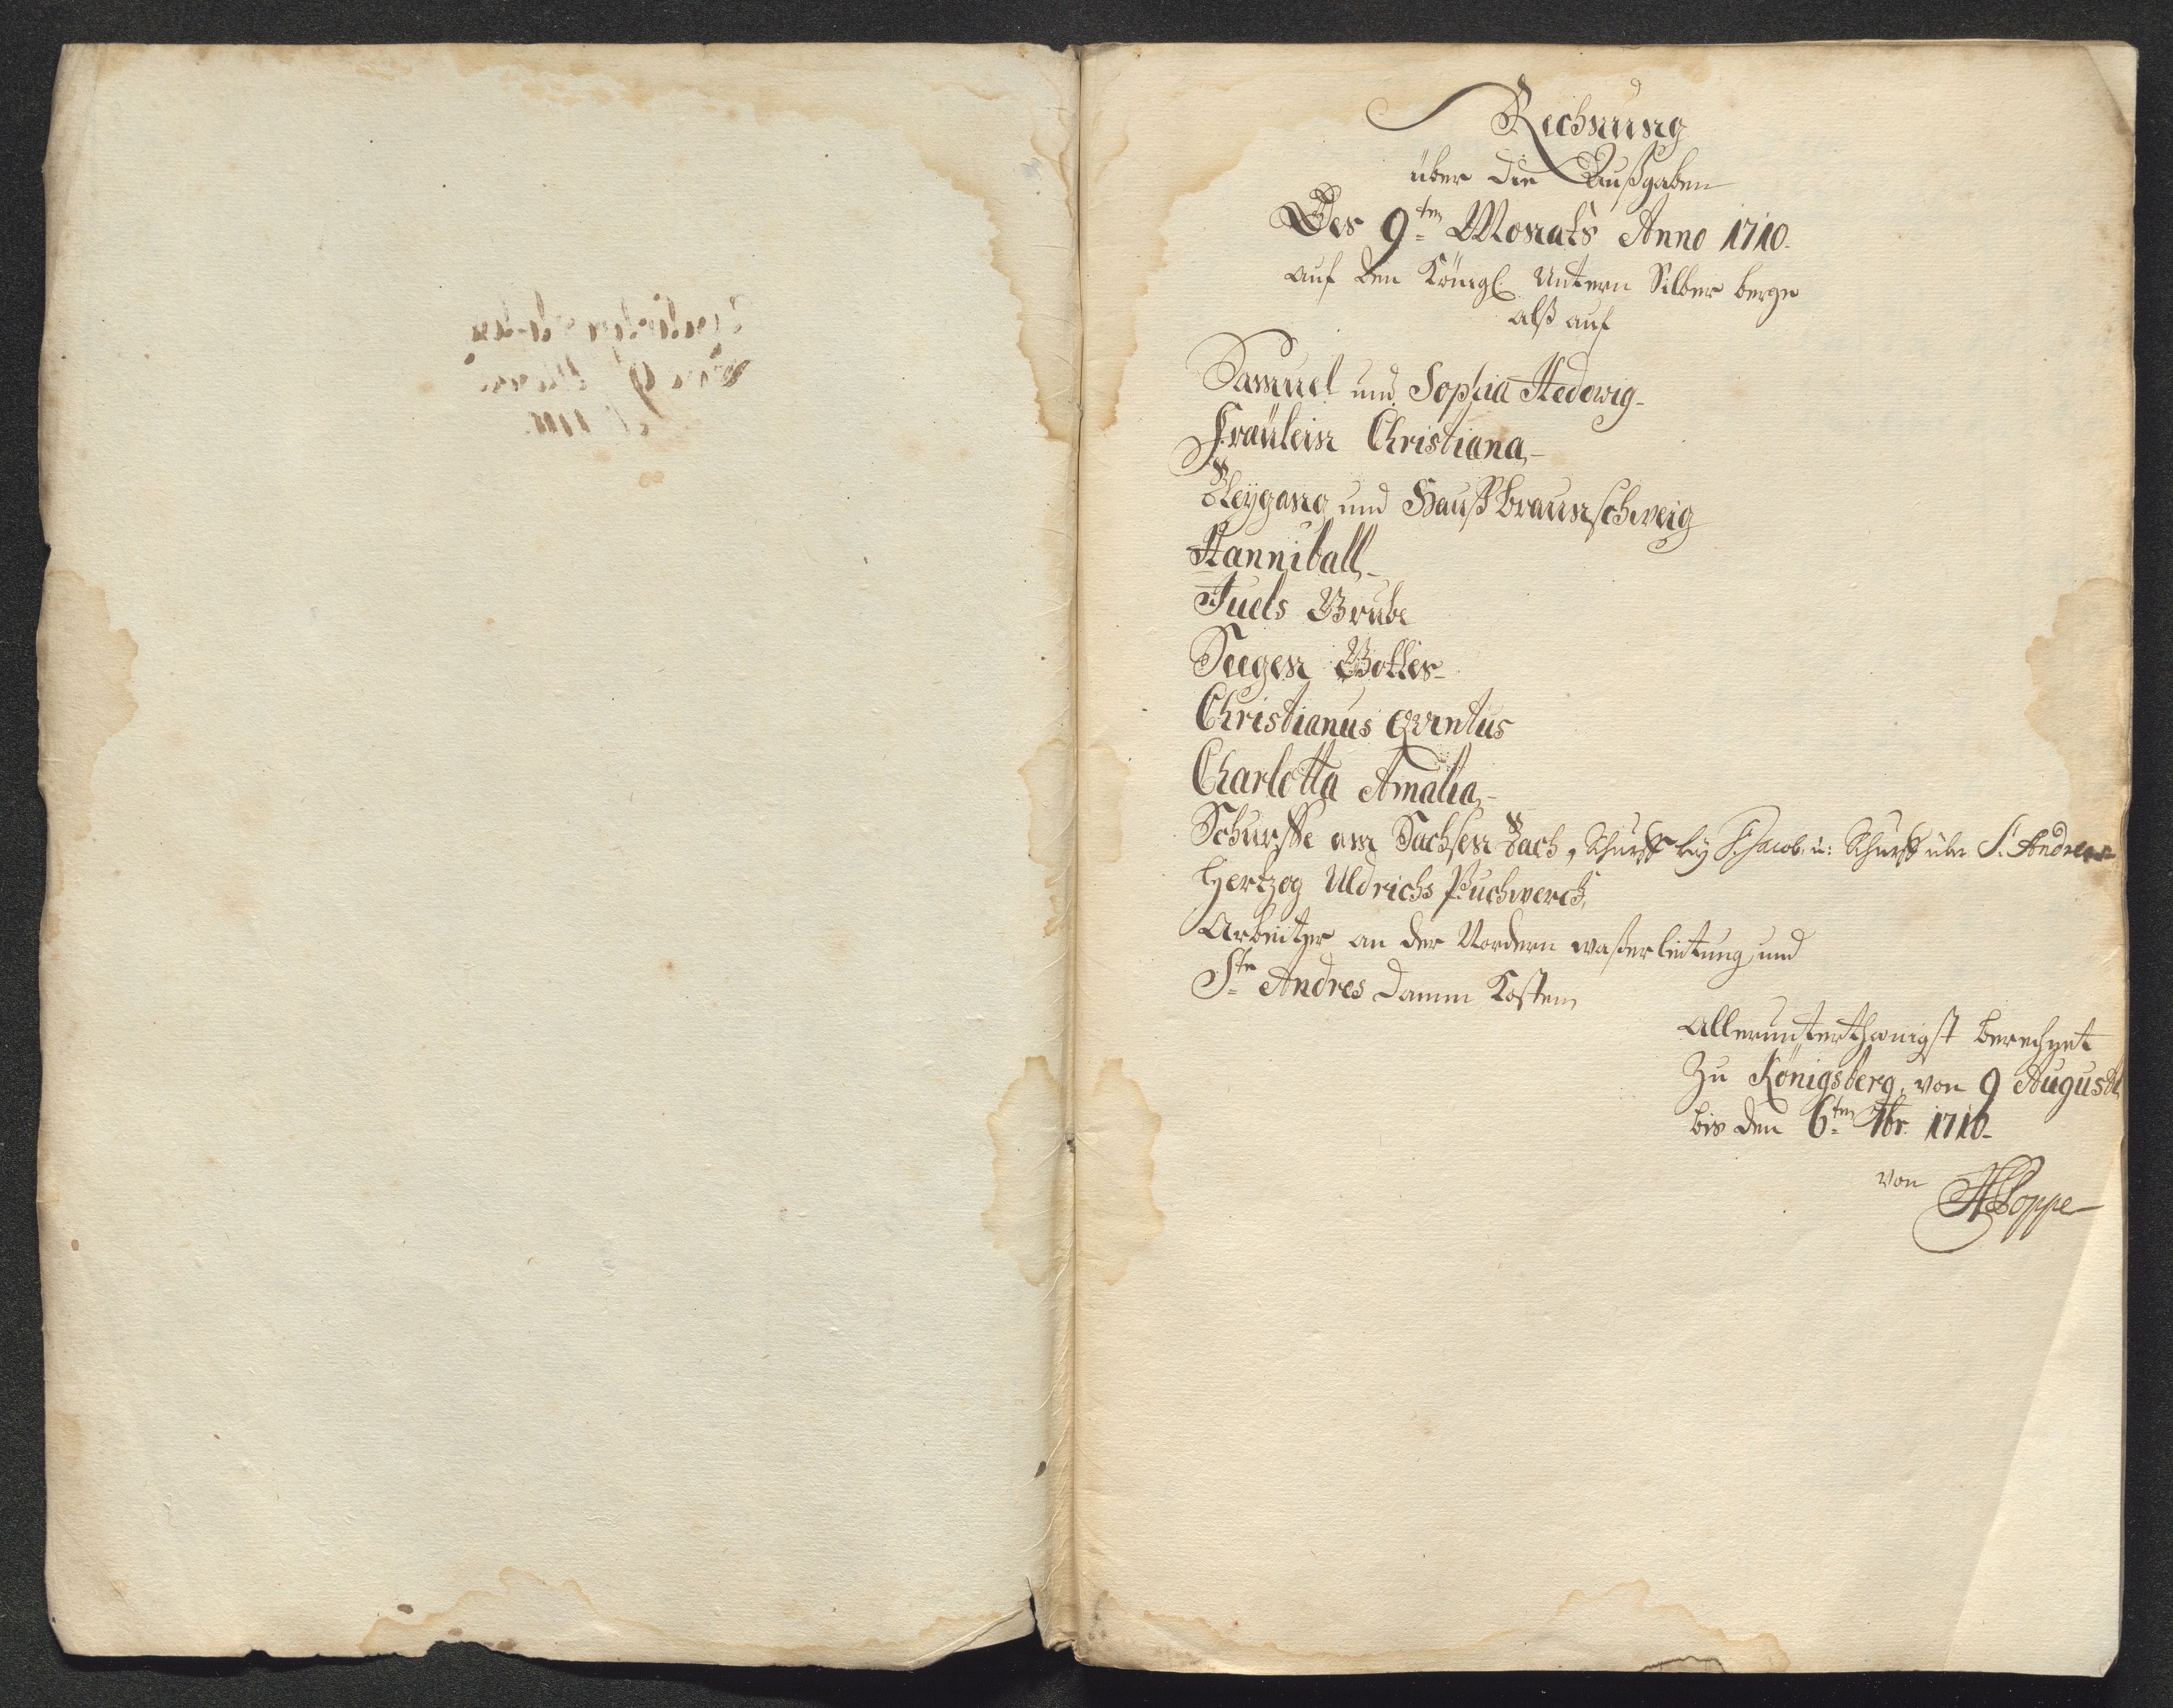 Rechnung
über die Außgaben
Des 9ten Monats Anno 1710.
auf den Königl. Untern Silber berge
alß auf
Samuel und Sophia Hedewig
Fräulein Christiana,
Bleygang und Hauß braunschweig
Hanniball,
Juels Grube
Seegen Gottes
Christianus Qvintus
Charlotta Amalia,
Schurffe am Sachsen Bach, Schurff bey St. Jacob u: Schurff über St. Andreas
Hertzog Uldrichs Puchwerck,
Arbeiter an der Nordern waßerleitung, und
Ste Andres Damm Kosten,
Allerunterthänigst berechnet
Zu Königsberg, von 9 Augusti,
bis den 6ten 7br. 1710.
von HPoppe